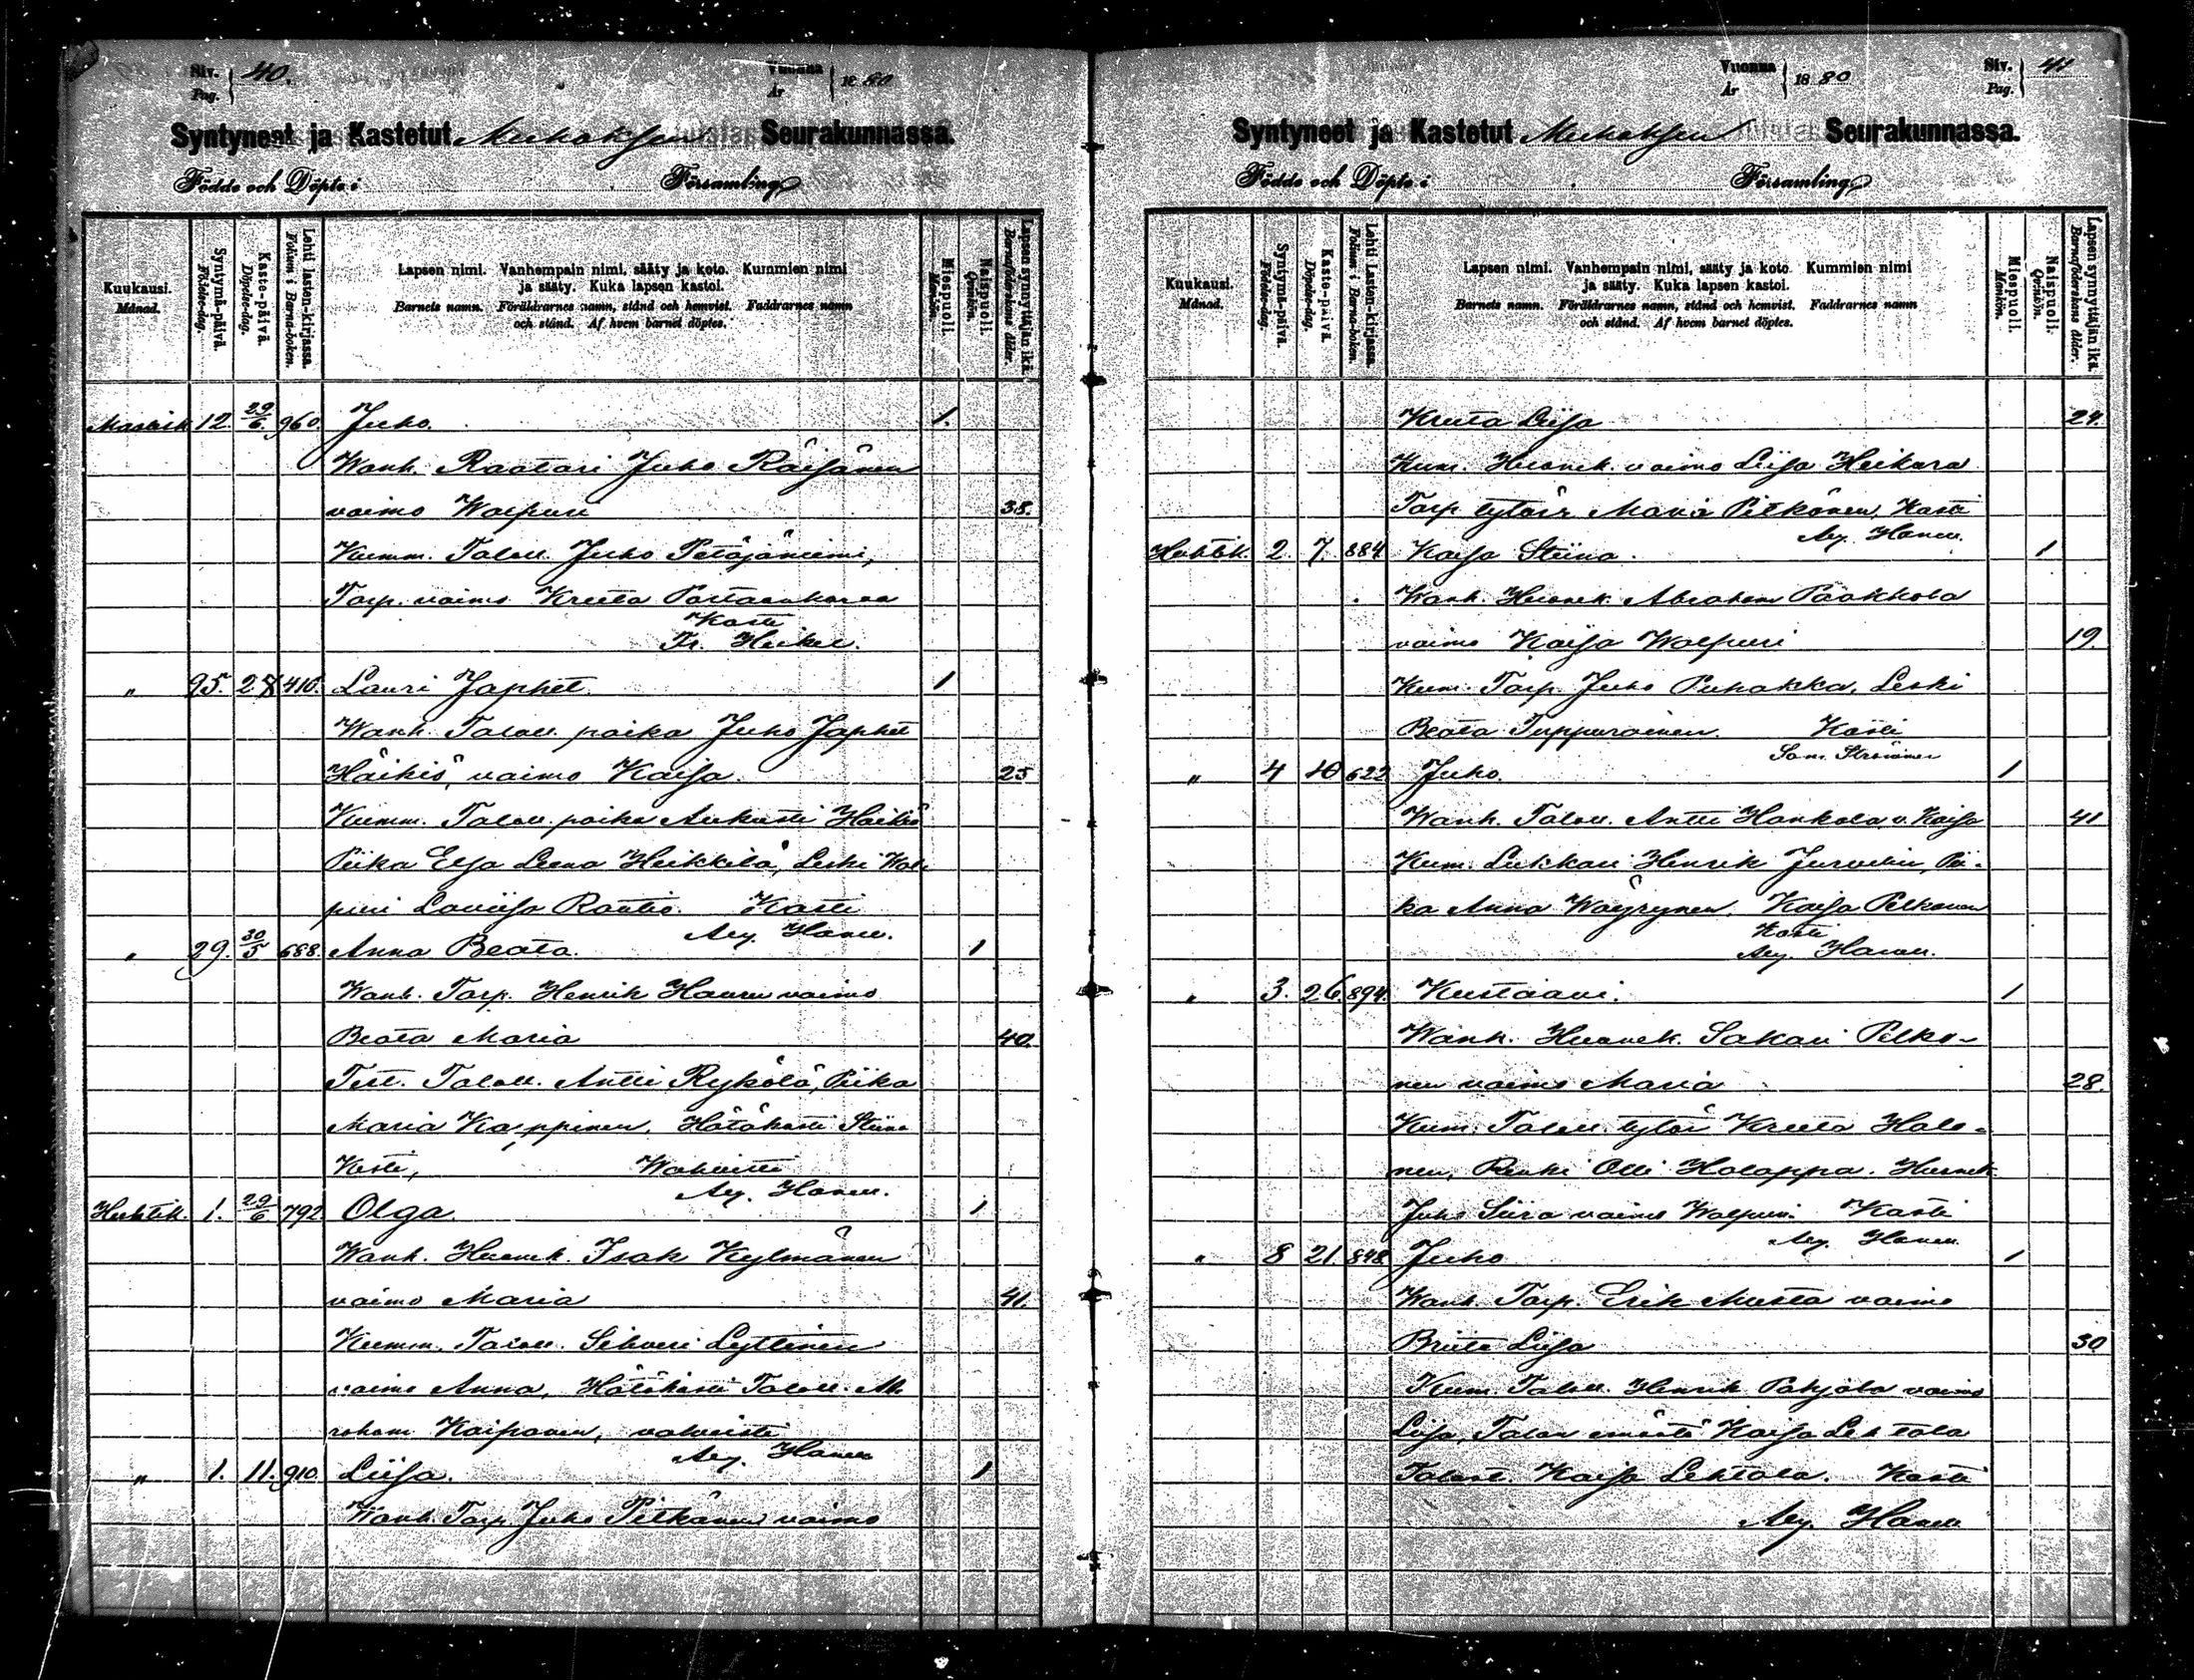 Siv. 40.
Pag.
Vuonna 1880
År
Syntyneet ja Kastetut Muhoksen Seurakunnassa.
Födde och Döpte i Församling
Kuukausi. Månad.
Syntymä-päivä. Födelse-dag.
Kaste-päivä. Döpelse-dag.
Lehti lasten-kirjassa. Folium i Barna-boken.
Lapsen nimi. Vanhempain nimi, sääty ja koto. Kummien nimi
ja sääty. Kuka lapsen kastoi.
Barnets namn. Föräldrarnes namn, stånd och hemvist. Faddrarnes namn
och stånd. Af hvem barnet döptes.
Miespuoli. Mankön.
Naispuoli. Qvinkön.
Lapsen synnyttäjän ikä. Barnaföderskans ålder.
Maalisk 12. 29/6 960. Juho. 1.
Wanh. Raatari Juho Räisänen
vaimo Walpuri 38.
Kumm. Talall. Juho Petäjäniemi,
Torp. vaimo Kreeta
Kasti
Fr. Heikel.
" 25. 28 410. Lauri Japhet. 1
Wanh. Talall. poika Juho Japhet
Häikiö, vaimo Kaisa. 25
Kumm. Talall. poika Aukusti Häikiö
Piika Elsa Leena Heikkilä, Leski Wal-
puri Loviisa Rautio. Kasti
Aug. Hanell.
" 29. 30/5 688. Anna Beata. 1
Wanh. Torp. Henrik Hauru vaimo
Beata Maria 40.
Test. Talall. Antti Rykölä, Piika
Maria Karppinen, Hätäkasti Stiina
Kesti, Wahvisti
Aug. Hanell.
Huhtik. 1. 29/6 792 Olga. 1
Wanh. Huonek. Isak Kylmänen
vaimo Maria 41.
Kumm. Talall. Sihveri Lyttinen
vaimo Anna, Hätäkasti Talall. Ab-
raham Kaiponen, vahvisti
Aug. Hanell
" 1. 11. 910. Liisa. 1
Wanh. Torp. Juho Pitkänen vaimo
Vuonna 1880
År
Siv. 41
Pag.
Syntyneet ja Kastetut Muhoksen Seurakunnassa.
Födde och Döpte i Församling
Kuukausi. Månad.
Syntymä-päivä. Födelse-dag.
Kaste-päivä. Döpelse-dag.
Lehti lasten-kirjassa. Folium i Barna-boken.
Lapsen nimi. Vanhempain nimi, sääty ja koto. Kummien nimi
ja sääty. Kuka lapsen kastoi.
Barnets namn. Föräldrarnes namn, stånd och hemvist. Faddrarnes namn
och stånd. Af hvem barnet döptes.
Miespuoli. Mankön.
Naispuoli. Qvinkön.
Lapsen synnyttäjän ikä. Barnaföderskans ålder.
Kreeta Liisa 24.
Kum. Huonek. vaimo Liisa Heikara
Torp. tytär Maria Pitkänen, Kasti
Aug. Hanell.
Huhtik. 2. 7. 884 Kaisa Stiina. 1
Wanh. Huonek. Abraham Pääkkölä
vaimo Kaisa Walpuri 19.
Kum. Torp. Juho Puhakka, Leski
Beata Tuppurainen. Kasti
" 4 10 622 Juho. 1
Wanh. Talall. Antti Hankala v. Kaisa 41
Kum. Lukkari Henrik Jurvelin, Pii-
ka Anna Wäyrynen, Kaisa Pelkonen
Kasti
Aug. Hanell.
" 3. 26. 894. Kustaavi. 1
Wanh. Huonek. Sakari Pelko-
nen vaimo Maria 28.
Kum. Talall. tytär Kreeta Halo-
nen, Renki Olli Holappa. Huonek.
Juho Siira vaimo Walpuri. Kasti
Aug. Hanell.
" 8 21. 848. Juho 1
Wanh. Torp. Erik Musta vaimo
Briita Liisa 30
Kum. Talall. Henrik Pohjola vaimo
Liisa, Talon emäntä Kaisa Lehtola
Kaisa Lehtola. Kasti
Aug. Hanell